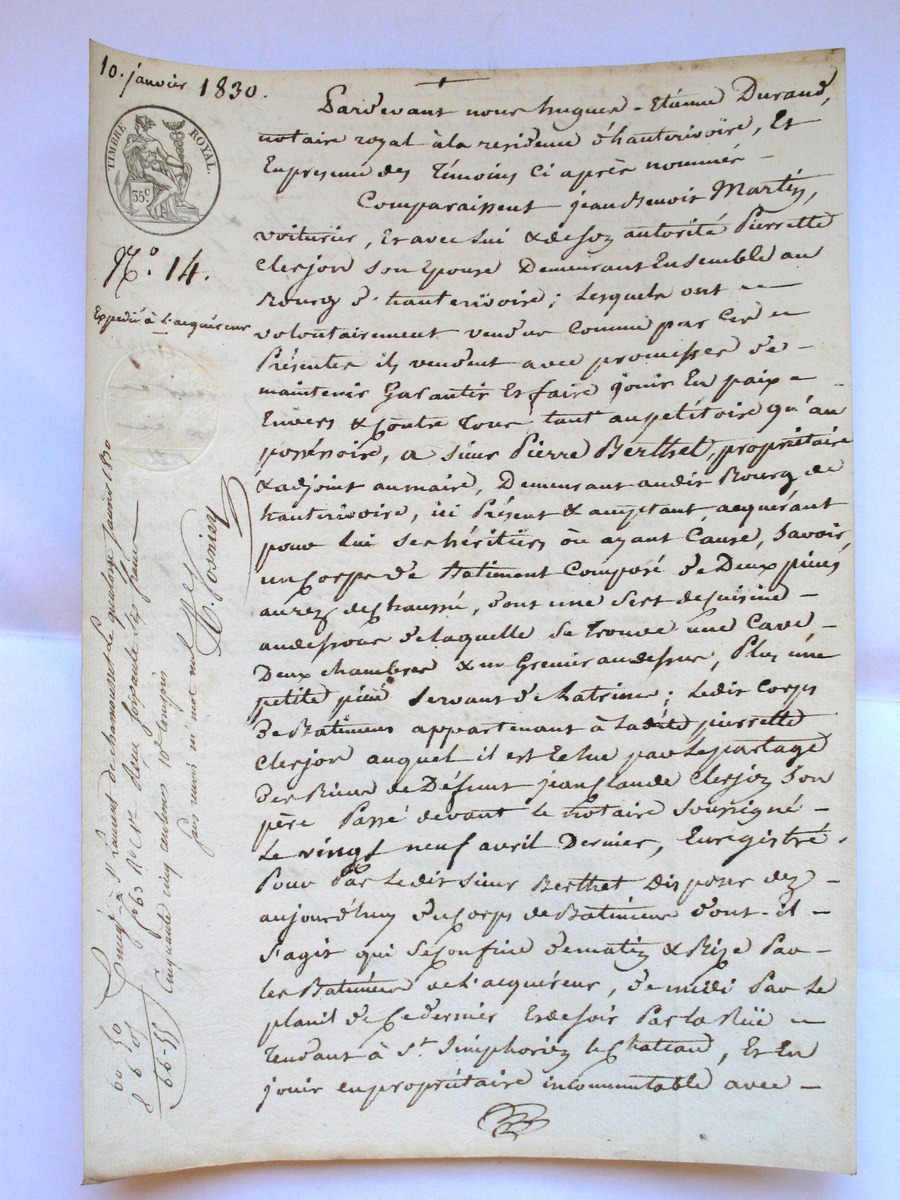 10. janvier 1830.
TIMBRE ROYAL.
35 c
N.o 14.
Expedié à L'acquéreur
Pardevant nous hugues-Etienne Durand,
notaire royal à la residence d'hauterivoire, Et
En presence des Témoins Ci après nommés
Comparaissent jean Benoit Martin,
voiturier, Et avec lui & de son autorité Pierrette
Clerjon son Epouse Demeurant Ensemble au
Bourg d'hauterivoire; Lesquels ont
volontairement vendu Comme par Ces
Présentes ils vendent avec promesses de
maintenir Garantir Et faire jouir En paix
Envers & Contre Tous tant au petitoire qu'au
possessoire, a sieur Pierre Berthet, propriétaire
& adjoint au maire, Demeurant audit Bourg de
hauterivoire, ici Présent & acceptant acquérant
pour Lui ses héritiers ou ayant Cause, Savoir
un Corps de Batiment Composé de Deux pièces
au rez de Chaussée, dont une sert de Cuisine
au dessous de laquelle se trouve une Cave
Deux chambres & un Grenier au dessus, Plus une
petite pièce servant de Latrines; Ledit Corps
de Batiment appartenant à Ladite pierrette
Clerjon auquel il est Echu par Le partage
des Biens de Défunt jean Claude Clerjon Son
père Passé devant le Notaire Soussigné
Le vingt neuf avril Dernier, Enregistré.
Pour Par Ledit Sieur Berthet Disposer dez
aujourd'huy du Corps de Batiment dont il
s'agit qui se Confine de matin & Bize Par
les Batiments de L'acquéreur, de midi Par Le
de Ce dernier Et de soir Par La Rüe
Tendant à St. Simphorien le Chateau, Et En
jouir en propriétaire incommutable avec
Enregé à St Laurent de chamousset le quatorze Janvier 1830
fo 63 Ro Cse Reçu soixante six francs
Cinquante cinq centimes 10e compris
60 50
6 05
66-55